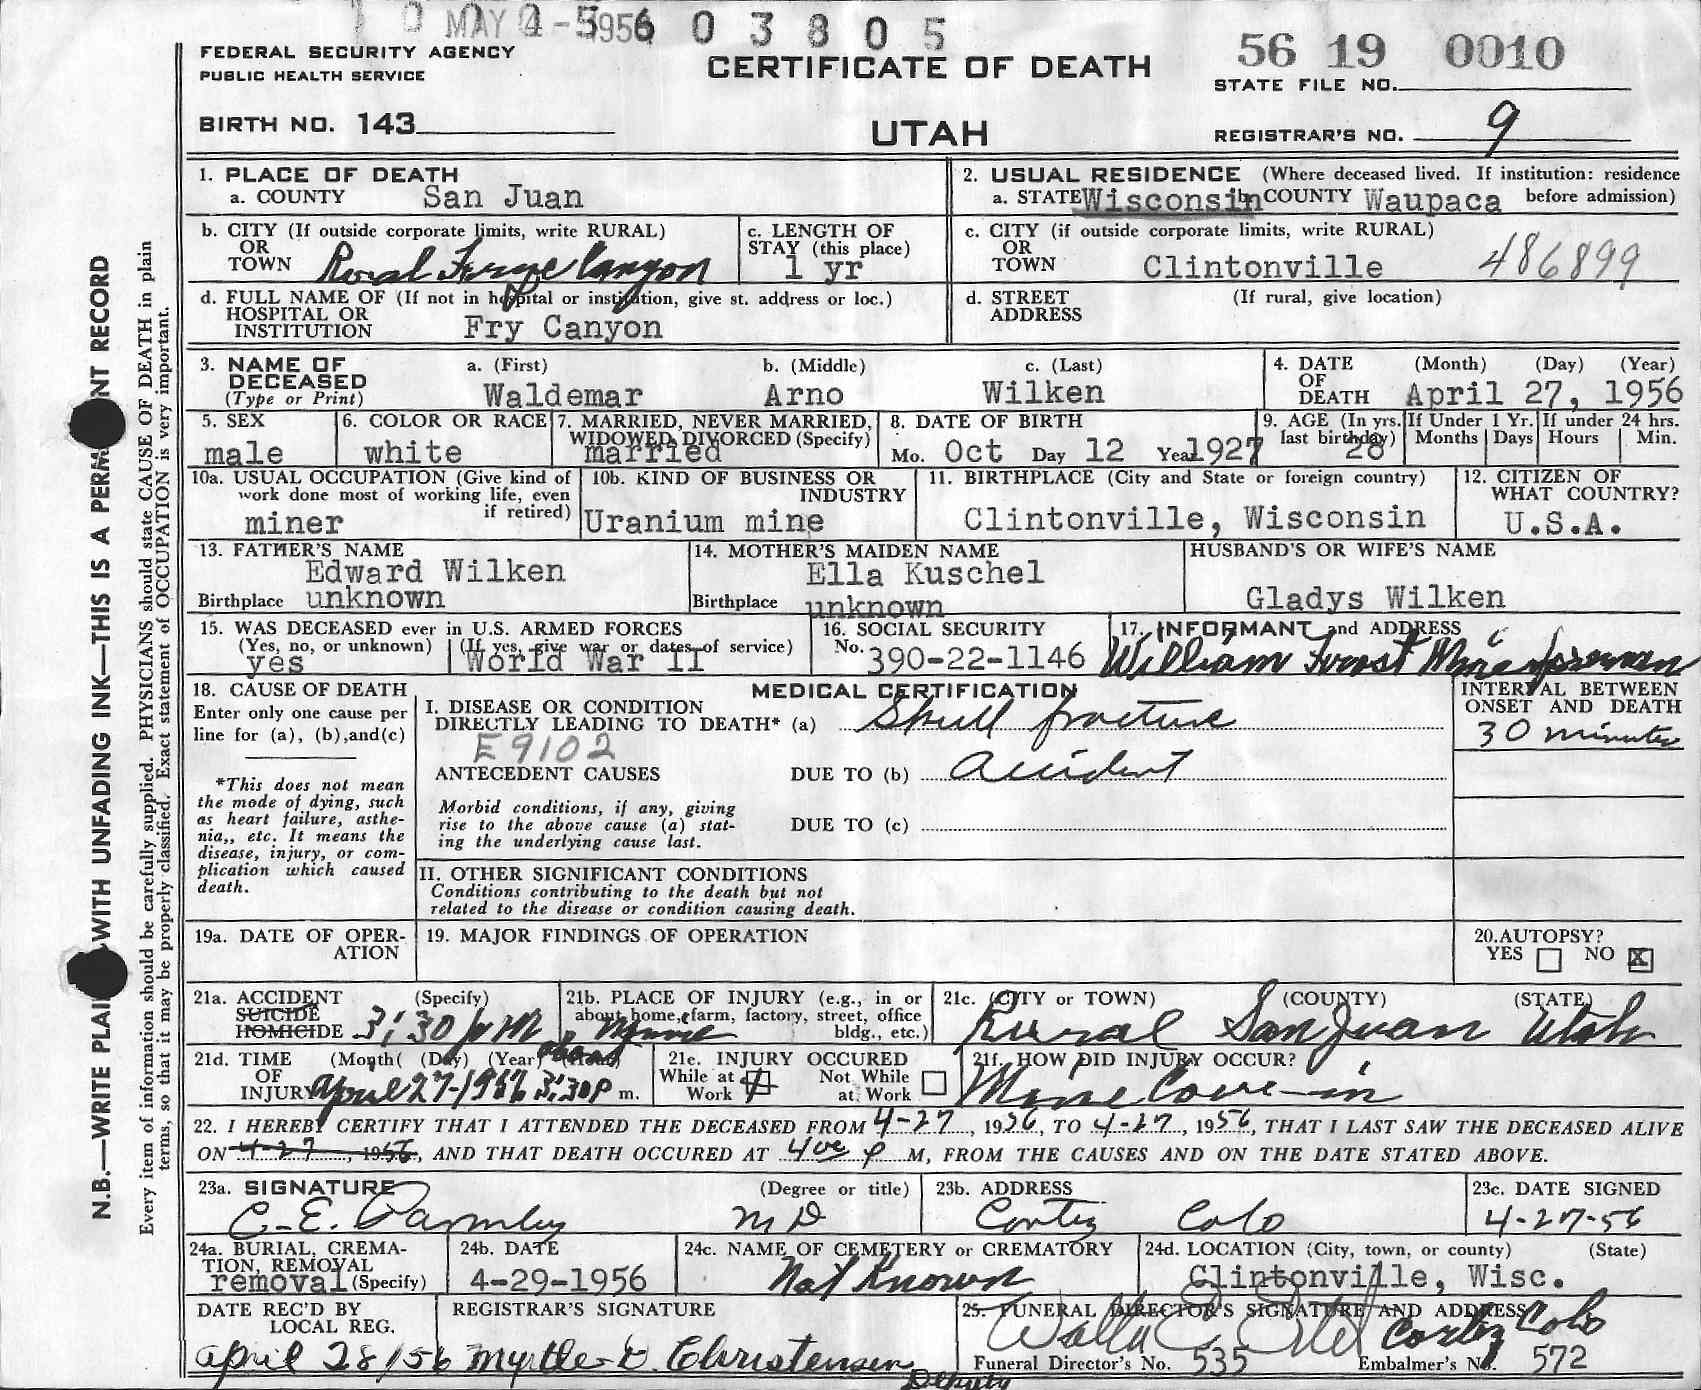 MAY 4-5 1956 0 3 8 0 5
FEDERAL SECURITY AGENCY
PUBLIC HEALTH SERVICE
CERTIFICATE OF DEATH
56 19 0010
STATE FILE NO.
BIRTH NO. 143
UTAH
REGISTRAR'S NO. 9
1. PLACE OF DEATH
a. COUNTY San Juan
2. USUAL RESIDENCE (Where deceased lived. If institution: residence before admission)
a. STATE Wisconsin b. COUNTY Waupaca
b. CITY (If outside corporate limits, write RURAL)
OR
TOWN Rural Canyon
c. LENGTH OF
STAY (this place)
1 yr
c. CITY (if outside corporate limits, write RURAL)
OR
TOWN Clintonville 486899
d. FULL NAME OF (If not in hospital or institution, give st. address or loc.)
HOSPITAL OR
INSTITUTION Fry Canyon
d. STREET (If rural, give location)
ADDRESS
3. NAME OF
DECEASED
(Type or Print)
a. (First) b. (Middle) c. (Last)
Waldemar Arno Wilken
4. DATE (Month) (Day) (Year)
OF
DEATH April 27, 1956
5. SEX
male
6. COLOR OR RACE
white
7. MARRIED, NEVER MARRIED,
WIDOWED, DIVORCED (Specify)
married
8. DATE OF BIRTH
Mo. Oct Day 12 Year 1927
9. AGE (In yrs.
last birthday)
28
If Under 1 Yr.
Months Days
If under 24 hrs.
Hours Min.
10a. USUAL OCCUPATION (Give kind of
work done most of working life, even
if retired)
miner
10b. KIND OF BUSINESS OR
INDUSTRY
Uranium mine
11. BIRTHPLACE (City and State or foreign country)
Clintonville, Wisconsin
12. CITIZEN OF
WHAT COUNTRY?
U.S.A.
13. FATHER'S NAME
Edward Wilken
Birthplace unknown
14. MOTHER'S MAIDEN NAME
Ella Kuschel
Birthplace unknown
HUSBAND'S OR WIFE'S NAME
Gladys Wilken
15. WAS DECEASED ever in U.S. ARMED FORCES
(Yes, no, or unknown) (If yes, give war or dates of service)
yes World War II
16. SOCIAL SECURITY
No. 390-22-1146
17. INFORMANT and ADDRESS
William Mine foreman
18. CAUSE OF DEATH
Enter only one cause per
line for (a), (b),and(c)
*This does not mean
the mode of dying, such
as heart failure, asthe-
nia,, etc. It means the
disease, injury, or com-
plication which caused
death.
MEDICAL CERTIFICATION
I. DISEASE OR CONDITION
DIRECTLY LEADING TO DEATH* (a) Skull fracture
E9102
ANTECEDENT CAUSES DUE TO (b) Accident
Morbid conditions, if any, giving
rise to the above cause (a) stat-
ing the underlying cause last.
DUE TO (c)
INTERVAL BETWEEN
ONSET AND DEATH
30 minutes
II. OTHER SIGNIFICANT CONDITIONS
Conditions contributing to the death but not
related to the disease or condition causing death.
19a. DATE OF OPER-
ATION
19. MAJOR FINDINGS OF OPERATION
20.AUTOPSY?
YES NO X
21a. ACCIDENT (Specify)
SUICIDE
HOMICIDE 3:30 p M
21b. PLACE OF INJURY (e.g., in or
about home, farm, factory, street, office
bldg., etc.)
Mine
21c. (CITY or TOWN) (COUNTY) (STATE)
Rural San Juan Utah
21d. TIME (Month( (Day) (Year) (Hour)
OF
INJURY April 27-1956 3:30P m.
21e. INJURY OCCURED
While at Work Not While at Work
21f. HOW DID INJURY OCCUR?
Mine Cave-in
22. I HEREBY CERTIFY THAT I ATTENDED THE DECEASED FROM 4-27, 1956, TO 4-27, 1956, THAT I LAST SAW THE DECEASED ALIVE
ON 4-27, 1956, AND THAT DEATH OCCURED AT 4:00 P M, FROM THE CAUSES AND ON THE DATE STATED ABOVE.
23a. SIGNATURE (Degree or title)
C. E. Parmley MD
23b. ADDRESS
Cortez Colo
23c. DATE SIGNED
4-27-56
24a. BURIAL, CREMA-
TION, REMOVAL
removal (Specify)
24b. DATE
4-29-1956
24c. NAME OF CEMETERY or CREMATORY
Not Known
24d. LOCATION (City, town, or county) (State)
Clintonville, Wisc.
DATE REC'D BY
LOCAL REG.
April 28/56
REGISTRAR'S SIGNATURE
Myrtle D. Christensen
Deputy
25. FUNERAL DIRECTOR'S SIGNATURE AND ADDRESS
Cortez Colo
Funeral Director's No. 535 Embalmer's No. 572
N.B.—WRITE PLAI WITH UNFADING INK—THIS IS A PERM NT RECORD
Every item of information should be carefully supplied. PHYSICIANS should state CAUSE OF DEATH in plain
terms, so that it may be properly classified. Exact statement of OCCUPATION is very important.